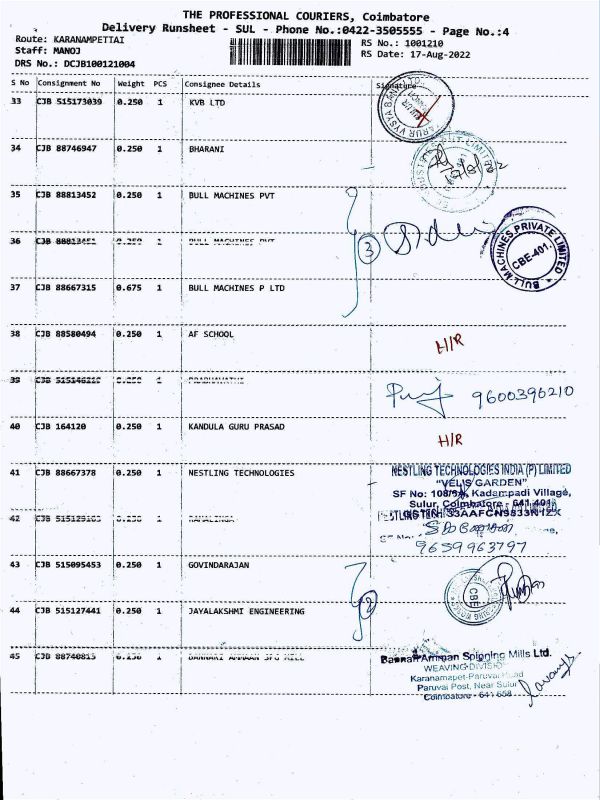 THE PROFESSIONAL COURIERS, Coimbatore
Delivery Runsheet - SUL - Phone No.:0422-3505555 - Page No.:4
Route: KARANAMPETTAI
Staff: MANOJ
DRS No.: DCJB100121004
RS No.: 1001210
RS Date: 17-Aug-2022
S No Consignment No Weight PCS Consignee Details Signature
33 CJB 515173039 0.250 1 KVB LTD
34 CJB 88746947 0.250 1 BHARANI
35 CJB 88813452 0.250 1 BULL MACHINES PVT
36 CJB 88813451 0.250 1 BULL MACHINES PVT
3
BULL MACHINES PRIVATE LIMITED
CBE-401.
37 CJB 88667315 0.675 1 BULL MACHINES P LTD
38 CJB 88580494 0.250 1 AF SCHOOL
H/R
39 CJB 1 PRABHAVATHI
9600396210
40 CJB 164120 0.250 1 KANDULA GURU PRASAD
H/R
41 CJB 88667378 0.250 1 NESTLING TECHNOLOGIES
NESTLING TECHNOLOGIES INDIA (P) LIMITED
"VELIS GARDEN"
SF No: Kadampadi Village,
Sulur, Coimbatore - 641 401
42 CJB 1
9659963797
43 CJB 515095453 0.250 1 GOVINDARAJAN
44 CJB 515127441 0.250 1 JAYALAKSHMI ENGINEERING
2
CBE
45 CJB 88740815 1 BANNARI AMMAN SPG MILL
Bannari Amman Spinning Mills Ltd.
WEAVING DIVISION
Karanampet-Paruvai Road
Paruvai Post, Near Sulur
Coimbatore - 641 658